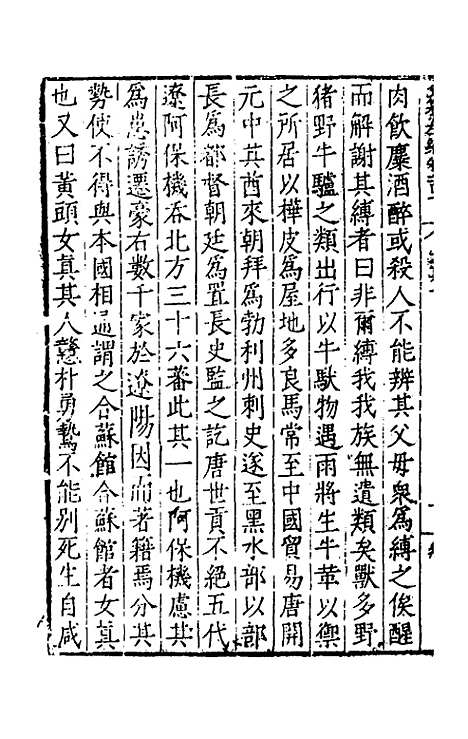 肉飲麋酒醉或殺人不能辨其父母衆爲縛之俟醒
而解謝其縛者曰非爾縛我我族無遺類矣獸多野
猪野牛驢之類出行以牛馱物遇雨將生牛革以禦
之所居以樺皮爲屋地多良馬常至中國貿易唐開
元中其酋來朝拜爲勃利州刺史遂至黑水部以部
長爲都督朝廷爲置長史監之訖唐世貢不絕五代
遼阿保機吞北方三十六蕃此其一也阿保機慮其
爲患誘遷豪右數千家於遼陽因而著籍焉分其
勢使不得與本國相通謂之合蘇館合蘇館者女真
也又曰黃頭女真其人戇朴勇鷙不能別死生自咸